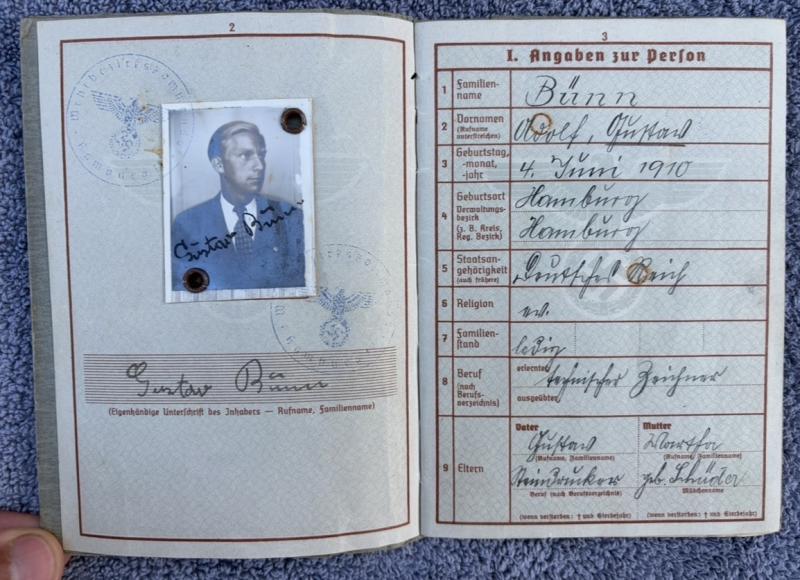 2
Gustav Bünn
Gustav Bünn
(Eigenhändige Unterschrift des Inhabers — Rufname, Familienname)
3
I. Angaben zur Person
1 Familien-
name
Bünn
2 Vornamen
(Rufname
unterstreichen)
Adolf, Gustav
3 Geburtstag,
-monat,
-jahr
4. Juni 1910
4 Geburtsort
Verwaltungs-
bezirk
(z. B. Kreis,
Reg. Bezirk)
Hamburg
Hamburg
5 Staatsan-
gehörigkeit
(auch frühere)
Deutsches Reich
6 Religion
ev.
7 Familien-
stand
ledig
8 Beruf
(nach
Berufs-
verzeichnis)
erlernter
technischer Zeichner
ausgeübter
9 Eltern
Vater
Gustav
(Rufname, Familienname)
Steindrucker
Beruf (nach Berufsverzeichnis)
(wenn verstorben: † und Sterbejahr)
Mutter
Martha
(Rufname, Familienname)
geb.
Mädchenname
(wenn verstorben: † und Sterbejahr)